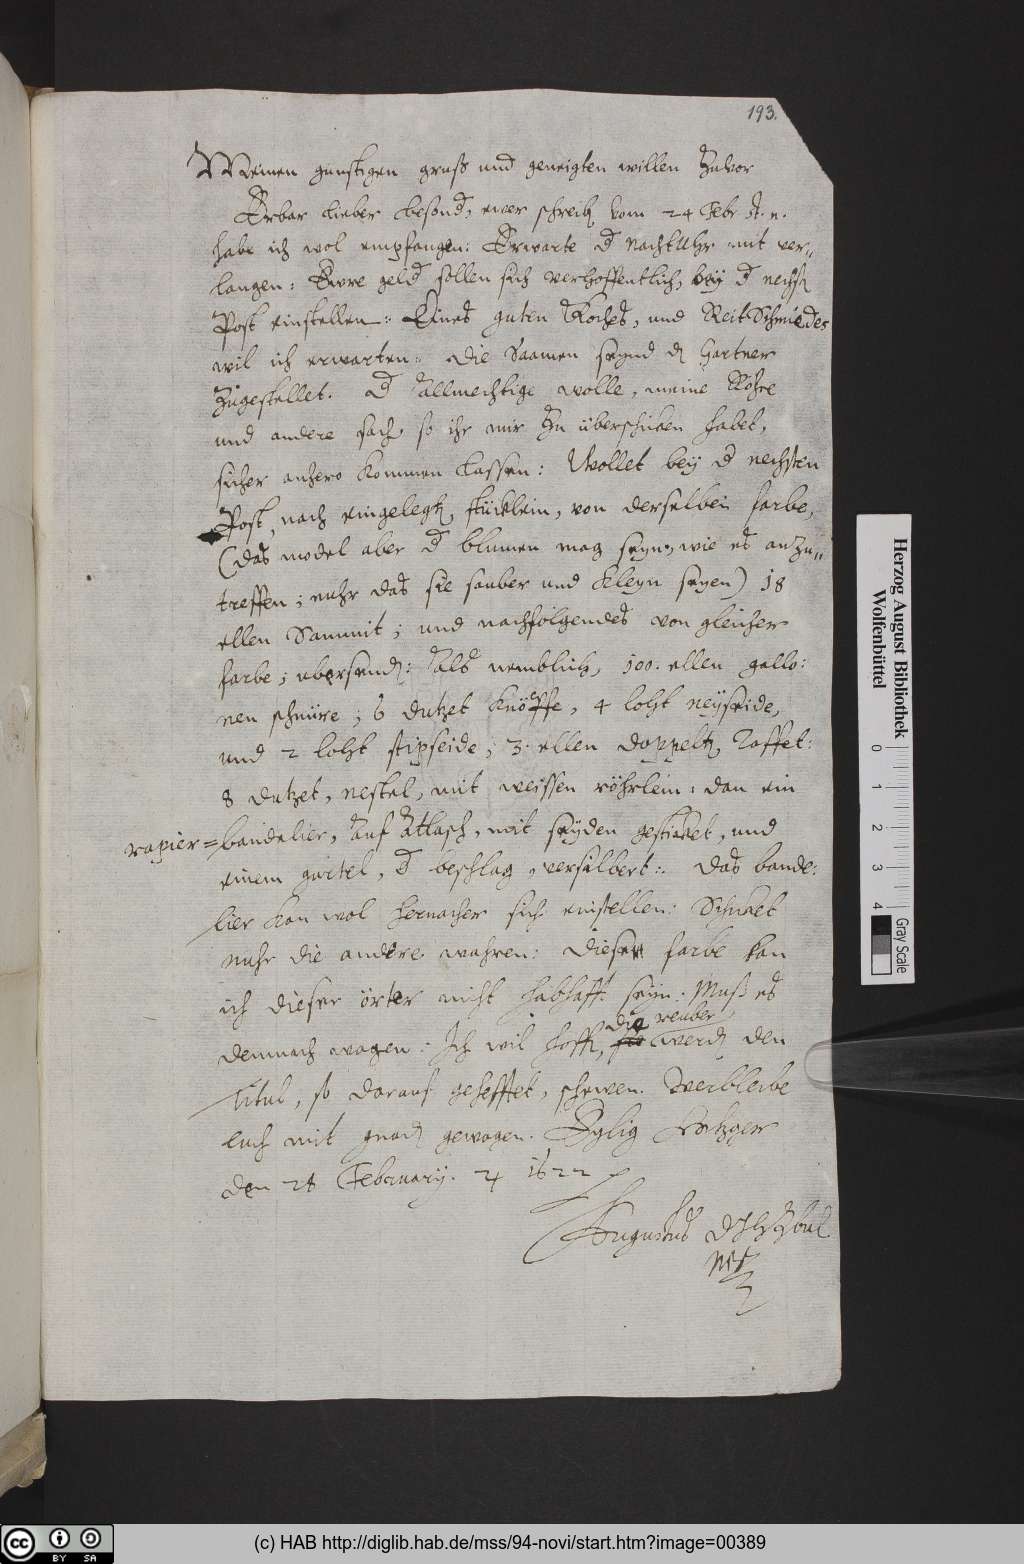 193.
Meinen gunstigen gruß und geneigten willen zuvor
Erbar lieber besond, ewer schreib vom 24 Febr. st. n.
habe ich wol empfangen: Erwarte d NachtUhr mit ver-
langen: Ewre geld sollen sich verhoffentlich, bey d nechst
Post einstellen: Eines guten Koches, und ReitSchmiedes
wil ich erwarten. Die Saamen seynd d Gartner
zugestellet. D Allmechtige wolle, meine Rohre
und andere sach, so ihr mir zu überschicken habet,
sicher anhero kommen lassen: Wollet bey d nechsten
Post, nach eingelegt, stücklein, von derselben farbe,
(das model aber d blumen mag seyn, wie es anzu-
treffen; nuhr das sie sauber und kleyn seyen) 18
ellen Sammit; und nachfolgendes von gleicher
farbe; ubersend: Als nemblich, 100. ellen gallo:
nen schnüre; 6 dutzet knöffe, 4 loht neyseide,
und 2 loht stipseide; 3. ellen doppelt, Taffet:
8 dutzet, nestel, mit weissen röhrlein: dan ein
rapier= bandelier, auf Atlasch, mit seyden gesticket, und
einem gürtel, d beschlag, versilbert:. Das bande:
lier kan wol hernacher sich einstellen: Schicket
nuhr die andere wahren: dieser farbe kan
ich dieser örter nicht habhaft seyn: Muß es
die reuber
demnach wagen: Ich wil hoff, werd den
titul, so darauf gehefftet, schewen. Verbleibe
euch mit gnad gewogen. Eylig Hitzger
den 28 February. 1622
Augustus DJHZBuL
mpp
Herzog August Bibliothek
Wolfenbüttel
0 1 2 3 4
Gray Scale
CC BY SA
(c) HAB http://diglib.hab.de/mss/94-novi/start.htm?image=00389